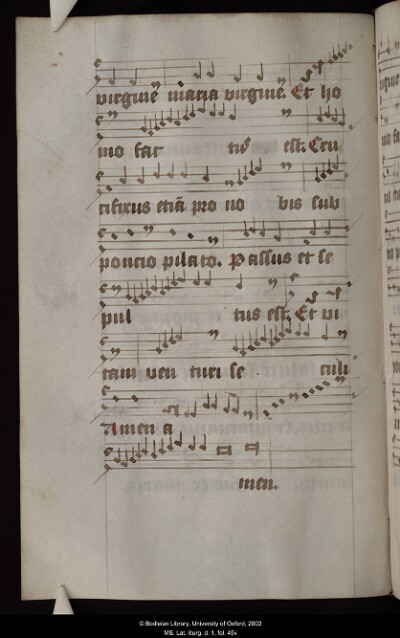 virginē maria virginē. Et ho
mo fac tus est. Cru
cifixus etiā pro no bis sub
poncio pilato. Passus et se
pul tus est. Et vi
tam ven turi se culi
Amen a
men.
© Bodleian Library, University of Oxford, 2002
MS. Lat. liturg. d. 1, fol. 45v